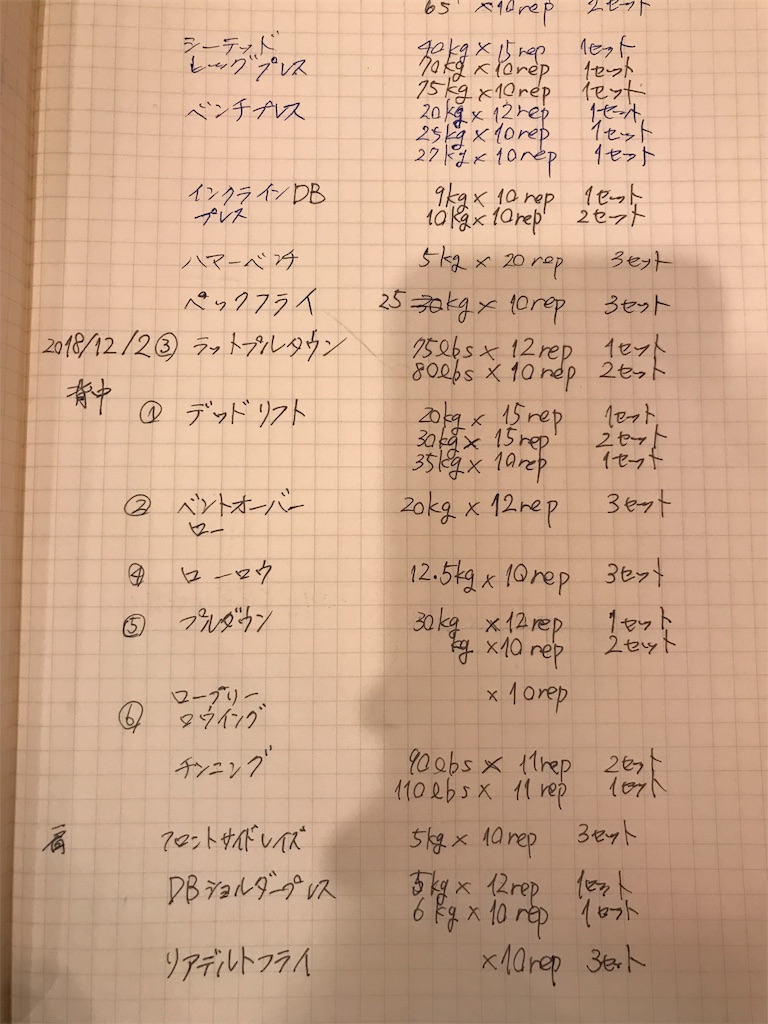 65 ×10rep 2セット
シーテッド 40kg×15rep 1セット
レッグプレス 70kg×10rep 1セット
75kg×10rep 1セット
ベンチプレス 20kg×12rep 1セット
25kg×10rep 1セット
27kg×10rep 1セット
インクラインDB 9kg×10rep 1セット
プレス 10kg×10rep 2セット
ハマーベンチ 5kg×20rep 3セット
ペックフライ 25 30kg×10rep 3セット
2018/12/2 ③ ラットプルダウン 75lbs×12rep 1セット
80lbs×10rep 2セット
背中
① デッドリフト 20kg×15rep 1セット
30kg×15rep 2セット
35kg×10rep 1セット
② ベントオーバー 20kg×12rep 3セット
ロー
④ ローロウ 12.5kg×10rep 3セット
⑤ プルダウン 30kg ×12rep 1セット
kg ×10rep 2セット
ロープリー ×10rep
⑥ ロウイング
チンニング 90lbs×11rep 2セット
110lbs×11rep 1セット
肩 フロントサイドレイズ 5kg×10rep 3セット
DBショルダープレス 5kg×12rep 1セット
6kg×10rep 1セット
リアデルトフライ ×10rep 3セット